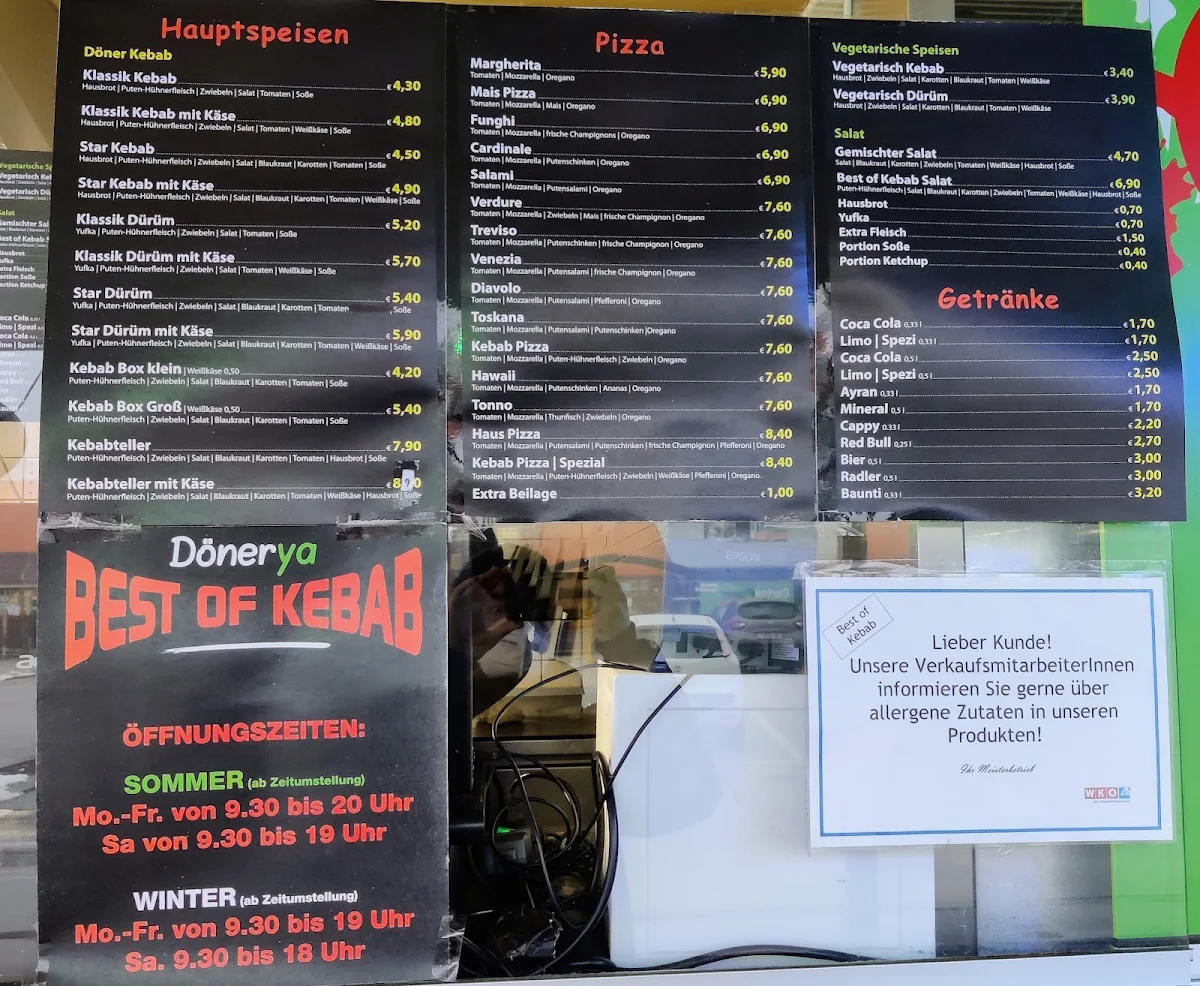 Hauptspeisen
Döner Kebab
Klassik Kebab € 4,30
Hausbrot | Puten-Hühnerfleisch | Zwiebeln | Salat | Tomaten | Soße
Klassik Kebab mit Käse € 4,80
Hausbrot | Puten-Hühnerfleisch | Zwiebeln | Salat | Tomaten | Weißkäse | Soße
Star Kebab € 4,50
Hausbrot | Puten-Hühnerfleisch | Zwiebeln | Salat | Blaukraut | Karotten | Tomaten | Soße
Star Kebab mit Käse € 4,90
Hausbrot | Puten-Hühnerfleisch | Zwiebeln | Salat | Blaukraut | Karotten | Tomaten | Weißkäse | Soße
Klassik Dürüm € 5,20
Yufka | Puten-Hühnerfleisch | Zwiebeln | Salat | Tomaten | Soße
Klassik Dürüm mit Käse € 5,70
Yufka | Puten-Hühnerfleisch | Zwiebeln | Salat | Tomaten | Weißkäse | Soße
Star Dürüm € 5,40
Yufka | Puten-Hühnerfleisch | Zwiebeln | Salat | Blaukraut | Karotten | Tomaten , Soße
Star Dürüm mit Käse € 5,90
Yufka | Puten-Hühnerfleisch | Zwiebeln | Salat | Blaukraut | Karotten | Tomaten | Weißkäse | Soße
Kebab Box klein | Weißkäse 0,50 € 4,20
Puten-Hühnerfleisch | Zwiebeln | Salat | Blaukraut | Karotten | Tomaten | Soße
Kebab Box Groß | Weißkäse 0,50 € 5,40
Puten-Hühnerfleisch | Zwiebeln | Salat | Blaukraut | Karotten | Tomaten | Soße
Kebabteller € 7,90
Puten-Hühnerfleisch | Zwiebeln | Salat | Blaukraut | Karotten | Tomaten | Hausbrot | Soße
Kebabteller mit Käse
Puten-Hühnerfleisch | Zwiebeln | Salat | Blaukraut | Karotten | Tomaten | Weißkäse | Hausbrot | Soße
Pizza
Margherita € 5,90
Tomaten | Mozzarella | Oregano
Mais Pizza € 6,90
Tomaten | Mozzarella | Mais | Oregano
Funghi € 6,90
Tomaten | Mozzarella | frische Champignons | Oregano
Cardinale € 6,90
Tomaten | Mozzarella | Putenschinken | Oregano
Salami € 6,90
Tomaten | Mozzarella | Putensalami | Oregano
Verdure € 7,60
Tomaten | Mozzarella | Zwiebeln | Mais | frische Champignon | Oregano
Treviso € 7,60
Tomaten | Mozzarella | Putenschinken | frische Champignon | Oregano
Venezia € 7,60
Tomaten | Mozzarella | Putensalami | frische Champignon | Oregano
Diavolo € 7,60
Tomaten | Mozzarella | Putensalami | Pfefferoni | Oregano
Toskana € 7,60
Tomaten | Mozzarella | Putensalami | Putenschinken |Oregano
Kebab Pizza € 7,60
Tomaten | Mozzarella | Puten-Hühnerfleisch | Zwiebeln | Oregano
Hawaii € 7,60
Tomaten | Mozzarella | Putenschinken | Ananas | Oregano
Tonno € 7,60
Tomaten | Mozzarella | Thunfisch | Zwiebeln | Oregano
Haus Pizza € 8,40
Tomaten | Mozzarella | Putensalami | Putenschinken | frische Champignon | Pfefferoni | Oregano
Kebab Pizza | Spezial € 8,40
Tomaten | Mozzarella | Puten-Hühnerfleisch | Zwiebeln | Weißkäse | Pfefferoni | Oregano
Extra Beilage € 1,00
Vegetarische Speisen
Vegetarisch Kebab € 3,40
Hausbrot | Zwiebeln | Salat | Karotten | Blaukraut | Tomaten | Weißkäse
Vegetarisch Dürüm € 3,90
Hausbrot | Zwiebeln | Salat | Karotten | Blaukraut | Tomaten | Weißkäse
Salat
Gemischter Salat € 4,70
Salat | Blaukraut | Karotten | Zwiebeln | Tomaten | Weißkäse | Hausbrot | Soße
Best of Kebab Salat € 6,90
Puten-Hühnerfleisch | Salat | Blaukraut | Karotten | Zwiebeln | Tomaten | Weißkäse | Hausbrot | Soße
Hausbrot € 0,70
Yufka € 0,70
Extra Fleisch € 1,50
Portion Soße € 0,40
Portion Ketchup € 0,40
Getränke
Coca Cola 0,33 l € 1,70
Limo | Spezi 0,33 l € 1,70
Coca Cola 0,5 l € 2,50
Limo | Spezi 0,5 l € 2,50
Ayran 0,33 l € 1,70
Mineral 0,5 l € 1,70
Cappy 0.33 l € 2,20
Red Bull 0,25 l € 2,70
Bier 0,5 l € 3,00
Radler 0,5 l € 3,00
Baunti 0,33 l € 3,20
Dönerya
BEST OF KEBAB
ÖFFNUNGSZEITEN:
SOMMER (ab Zeitumstellung)
Mo.-Fr. von 9.30 bis 20 Uhr
Sa von 9.30 bis 19 Uhr
WINTER (ab Zeitumstellung)
Mo.-Fr. von 9.30 bis 19 Uhr
Sa. 9.30 bis 18 Uhr
EPSON
Best of
Kebab
Lieber Kunde!
Unsere VerkaufsmitarbeiterInnen
informieren Sie gerne über
allergene Zutaten in unseren
Produkten!
Ihr Meisterbetrieb
WKO